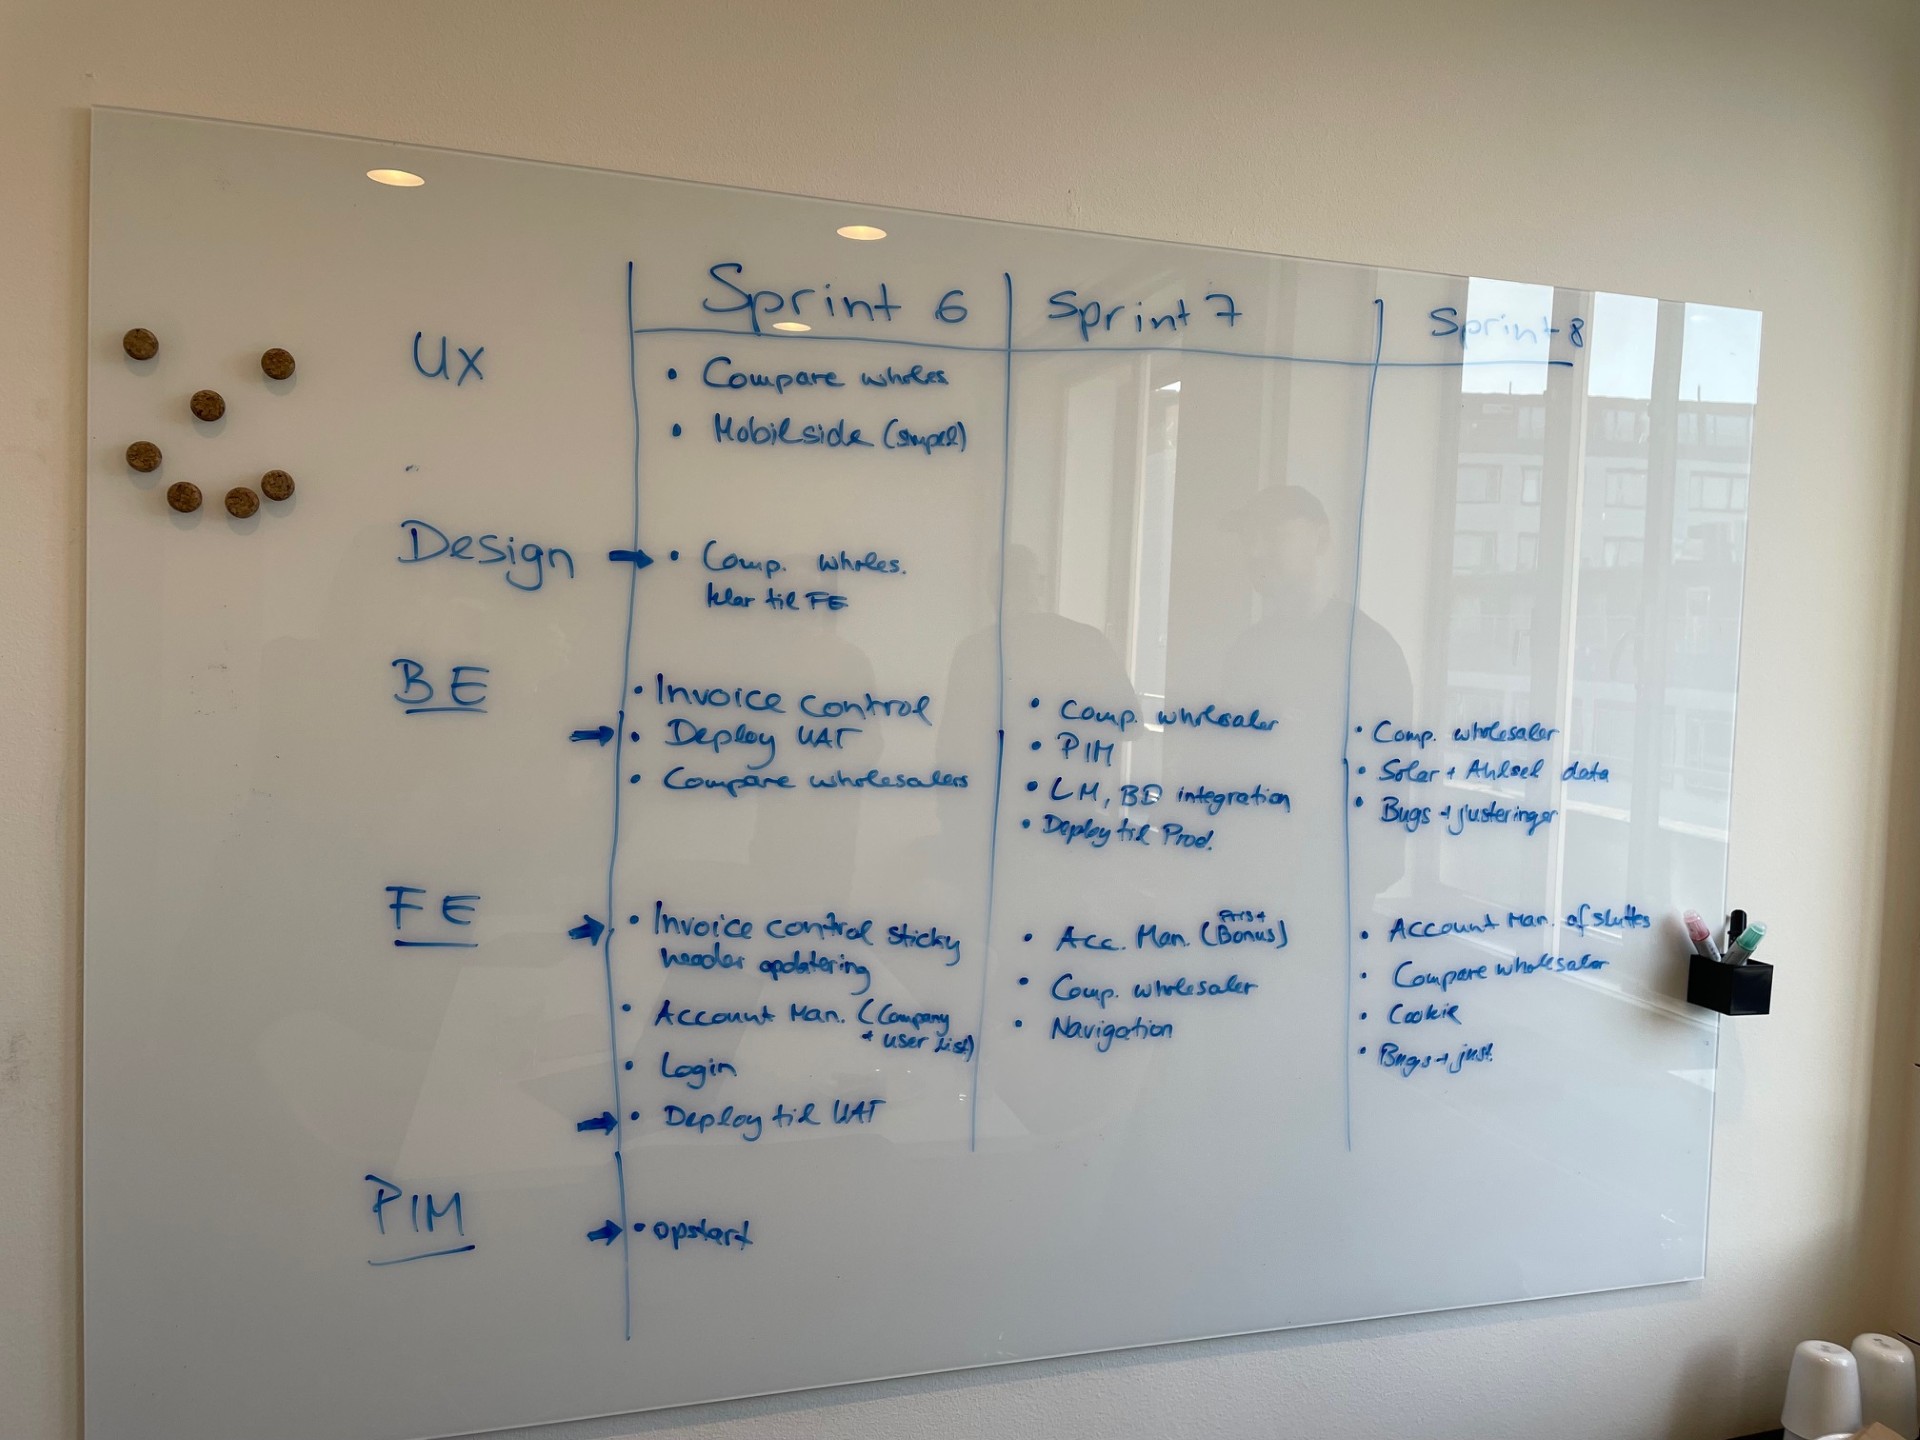 Sprint 6
Sprint 7
Sprint 8
UX
• Compare wholes.
• Mobilside (simpel)
Design
• Comp. wholes.
klar til FE
BE
• Invoice control
• Deploy UAT
• Compare wholesalers
• Comp. wholesaler
• PIM
• LM, BD integration
• Deploy til Prod.
• Comp. wholesaler
• Solar + Ahlsel data
• Bugs + justeringer
FE
• Invoice control sticky
header opdatering
• Account Man. (Company
+ user list)
• Login
• Deploy til UAT
• Acc. Man. (Bonus)
• Comp. wholesaler
• Navigation
• Account Man. afsluttes
• Compare wholesaler
• Cookie
• Bugs + just.
PIM
• opstart